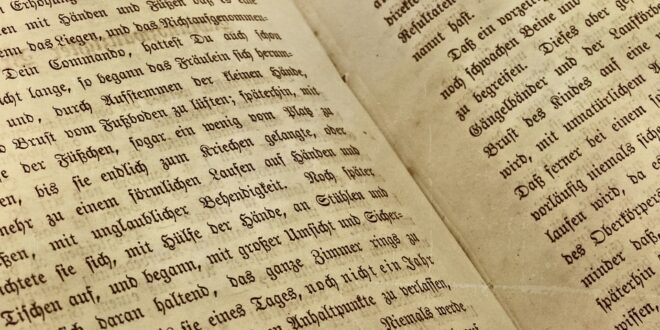 Erhöhung
mit Händen und Füßen daß es die
das Liegen, und das Nichtaufgenommen-
Dein Commando, hattest Du auch schon
nicht lange, so begann das Fräulein sich herum-
und, durch Aufstemmen der kleinen Hände,
Brust vom Fußboden zu lüften; späterhin, mit
der Füßchen, sogar ein wenig vom Platz zu
bis sie endlich zum Kriechen gelangte, oder
mehr zu einem förmlichen Laufen auf Händen und
mit unglaublicher Behendigkeit. Noch später
richtete sie sich, mit Hülfe der Hände, an Stühlen und
Tischen auf, und begann, mit großer Umsicht und Sicher-
daran haltend, das ganze Zimmer rings zu
sie eines Tages, noch nicht ein Jahr
Anhaltpunkte zu verlassen,
Niemals werde
direkte
Resultaten
nannt hast.
Daß ein vorzeit
noch schwachen Beine und
zu begreifen. Dieses aber ge
Gängelbänder und der Laufkörbe
Brust des Kindes auf eine
wird, mit unnatürlichem
Daß ferner bei einem so
vorläufig niemals sich
laufen wird, da e
des Oberkörper
minder daß
späterhin